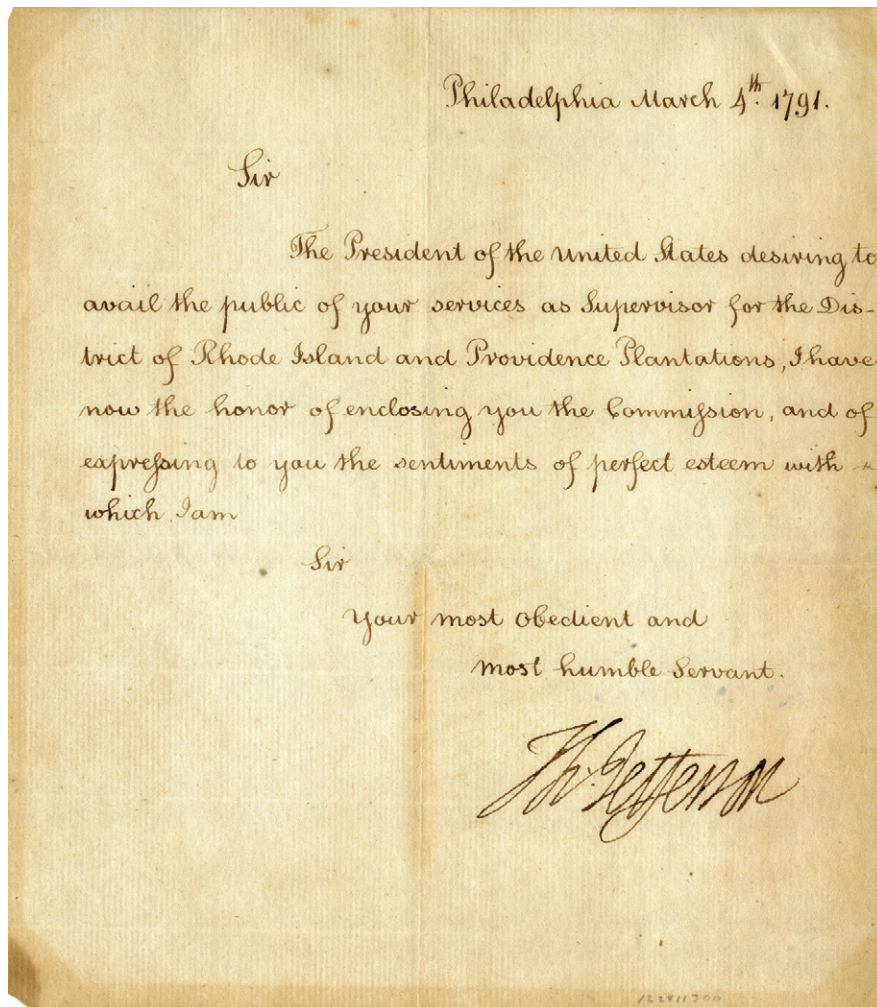 Philadelphia March 4th. 1791.
Sir
The President of the United States desiring to
avail the public of your services as Supervisor for the Dis-
trict of Rhode Island and Providence Plantations, I have
now the honor of enclosing you the Commiſsion, and of
expreſsing to you the sentiments of perfect esteem with
which I am
Sir
Your most obedient and
most humble Servant.
Th: Jefferson